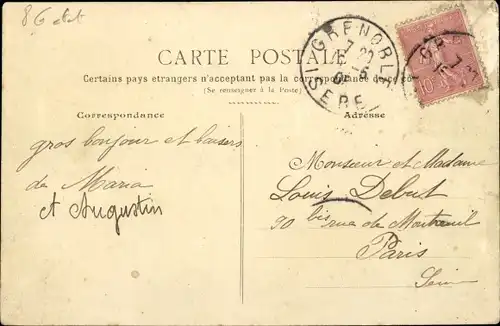 CARTE POSTALE
Certains pays etrangers n'acceptant pas la correspondance
(Se renseigner à la Poste)
GRENOBLE
ISERE
10
Correspondance
Adresse
gros bonjour et baisers
de Maria
et Augustin
Monsieur et Madame
Louis Debut
90 bis rue de Montreuil
Paris
Seine